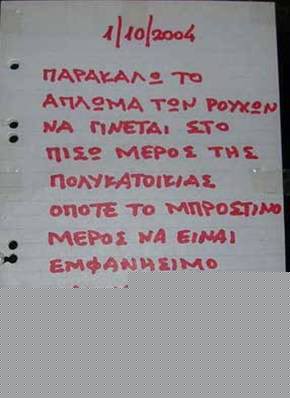 1/10/2004
ΠΑΡΑΚΑΛΩ ΤΟ
ΑΠΛΩΜΑ ΤΩΝ ΡΟΥΧΩΝ
ΝΑ ΓΙΝΕΤΑΙ ΣΤΟ
ΠΙΣΩ ΜΕΡΟΣ ΤΗΣ
ΠΟΛΥΚΑΤΟΙΚΙΑΣ
ΟΠΟΤΕ ΤΟ ΜΠΡΟΣΤΙΝΟ
ΜΕΡΟΣ ΝΑ ΕΙΝΑΙ
ΕΜΦΑΝΗΣΙΜΟ